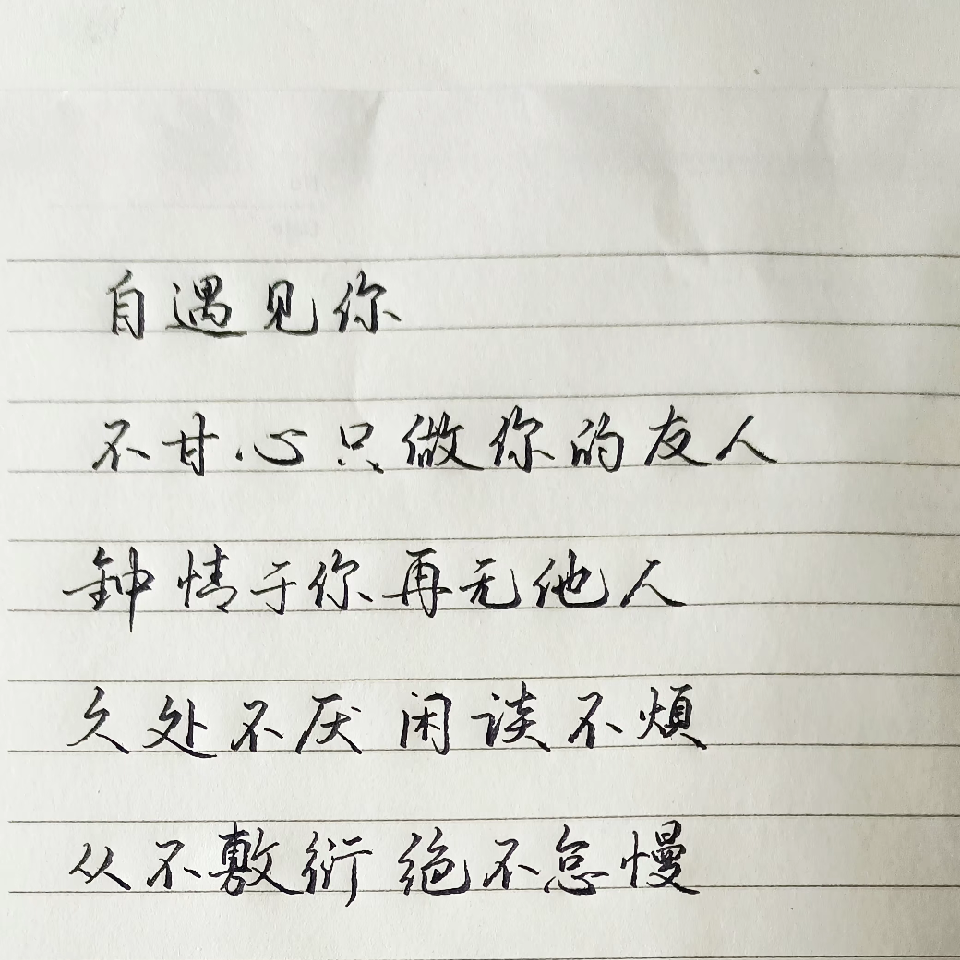 自遇见你
不甘心只做你的友人
钟情于你再无他人
久处不厌 闲谈不烦
从不敷衍 绝不怠慢